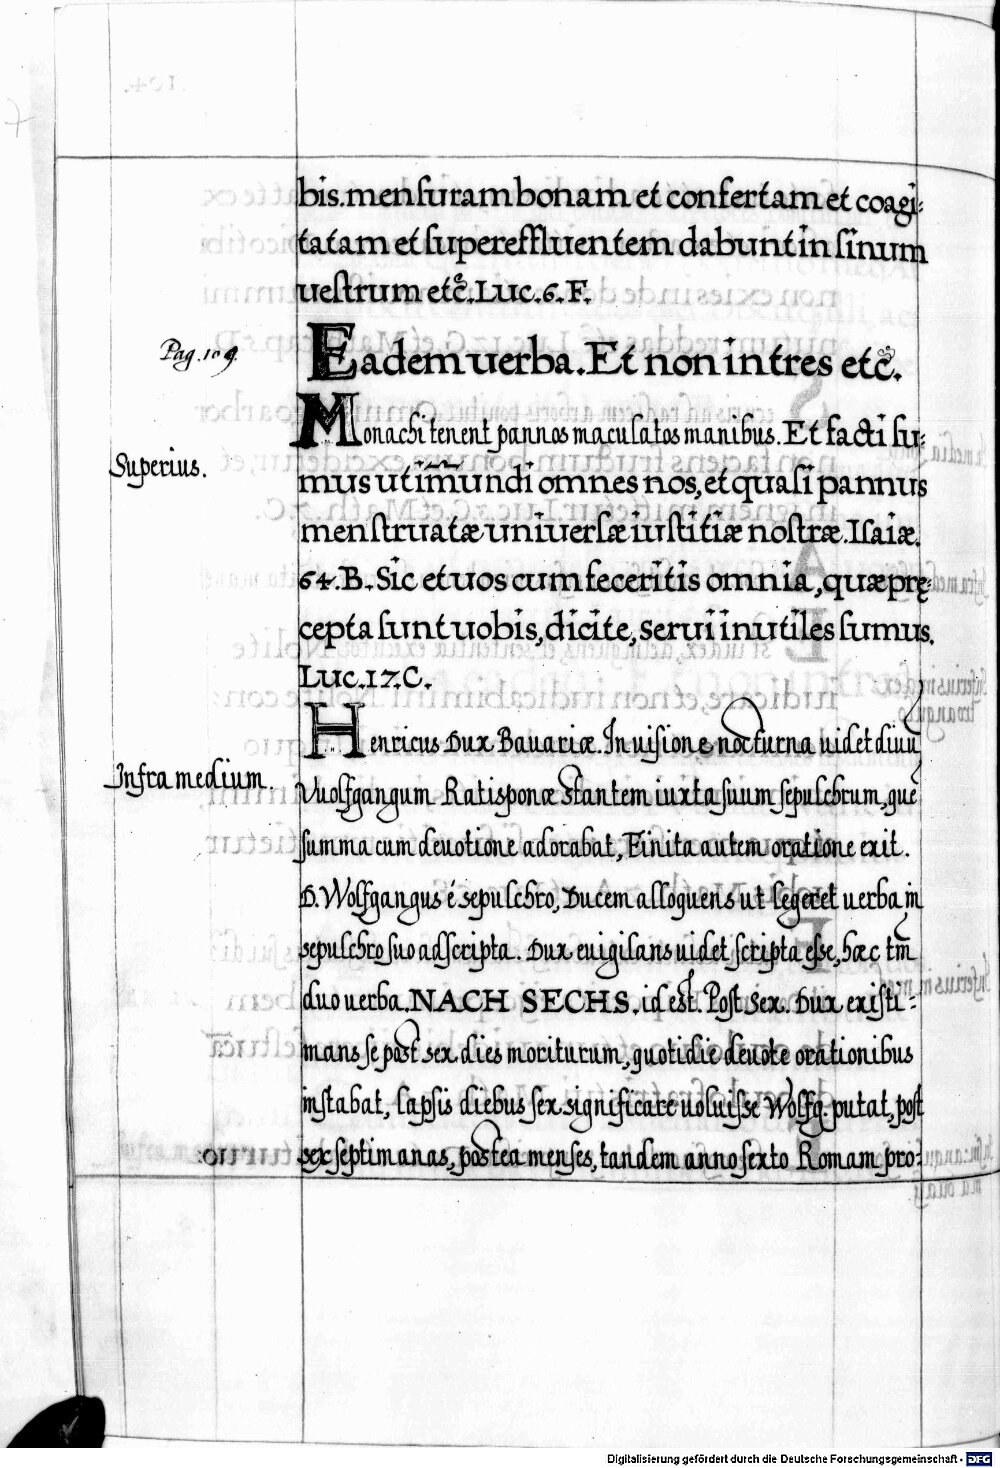 bis. mensuram bonam et confertam et coagi-
tatam et supereffluentem dabunt in sinum
uestrum etc. Luc. 6. F.
Pag. 109.
Eadem uerba. Et non intres etc.
Monachi tenent pannos maculatos manibus. Et facti su-
Superius.
mus ut im̄undi omnes nos, et quasi pannus
menstruatæ uniuersæ iustitiæ nostræ. Isaiæ.
64. B. Sic et uos cum feceritis omnia, quæ prę-
cepta sunt uobis, dicite, serui inutiles sumus.
Luc. 17. C.
Henricus Dux Bauariæ. In uisione nocturna uidet diuū
Infra medium.
Vuolfgangum Ratisponæ stantem iuxta suum sepulchrum, que
summa cum deuotione adorabat, Finita autem oratione exit.
D. Wolfgangus é sepulchro, Ducem alloquens ut legeret uerba in
sepulchro suo adscripta. Dux euigilans uidet scripta esse, hæc tm̄
duo uerba. NACH SECHS. id est. Post sex. Dux existi-
mans se post sex dies moriturum, quotidie deuote orationibus
instabat, lapsis diebus sex. significare uoluisse Wolfg. putat, post
sex septimanas, postea menses, tandem anno sexto Romam pro-
Digitalisierung gefördert durch die Deutsche Forschungsgemeinschaft - DFG